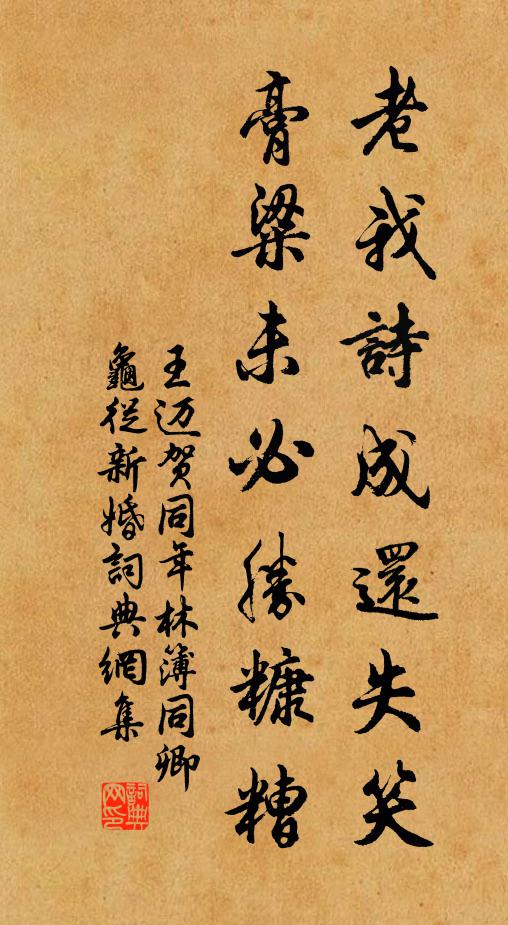 老我詩成還失笑
膏粱未必勝糠糟
王迈贺同年林簿同卿
龜從新婚詞典網集
詞典网印